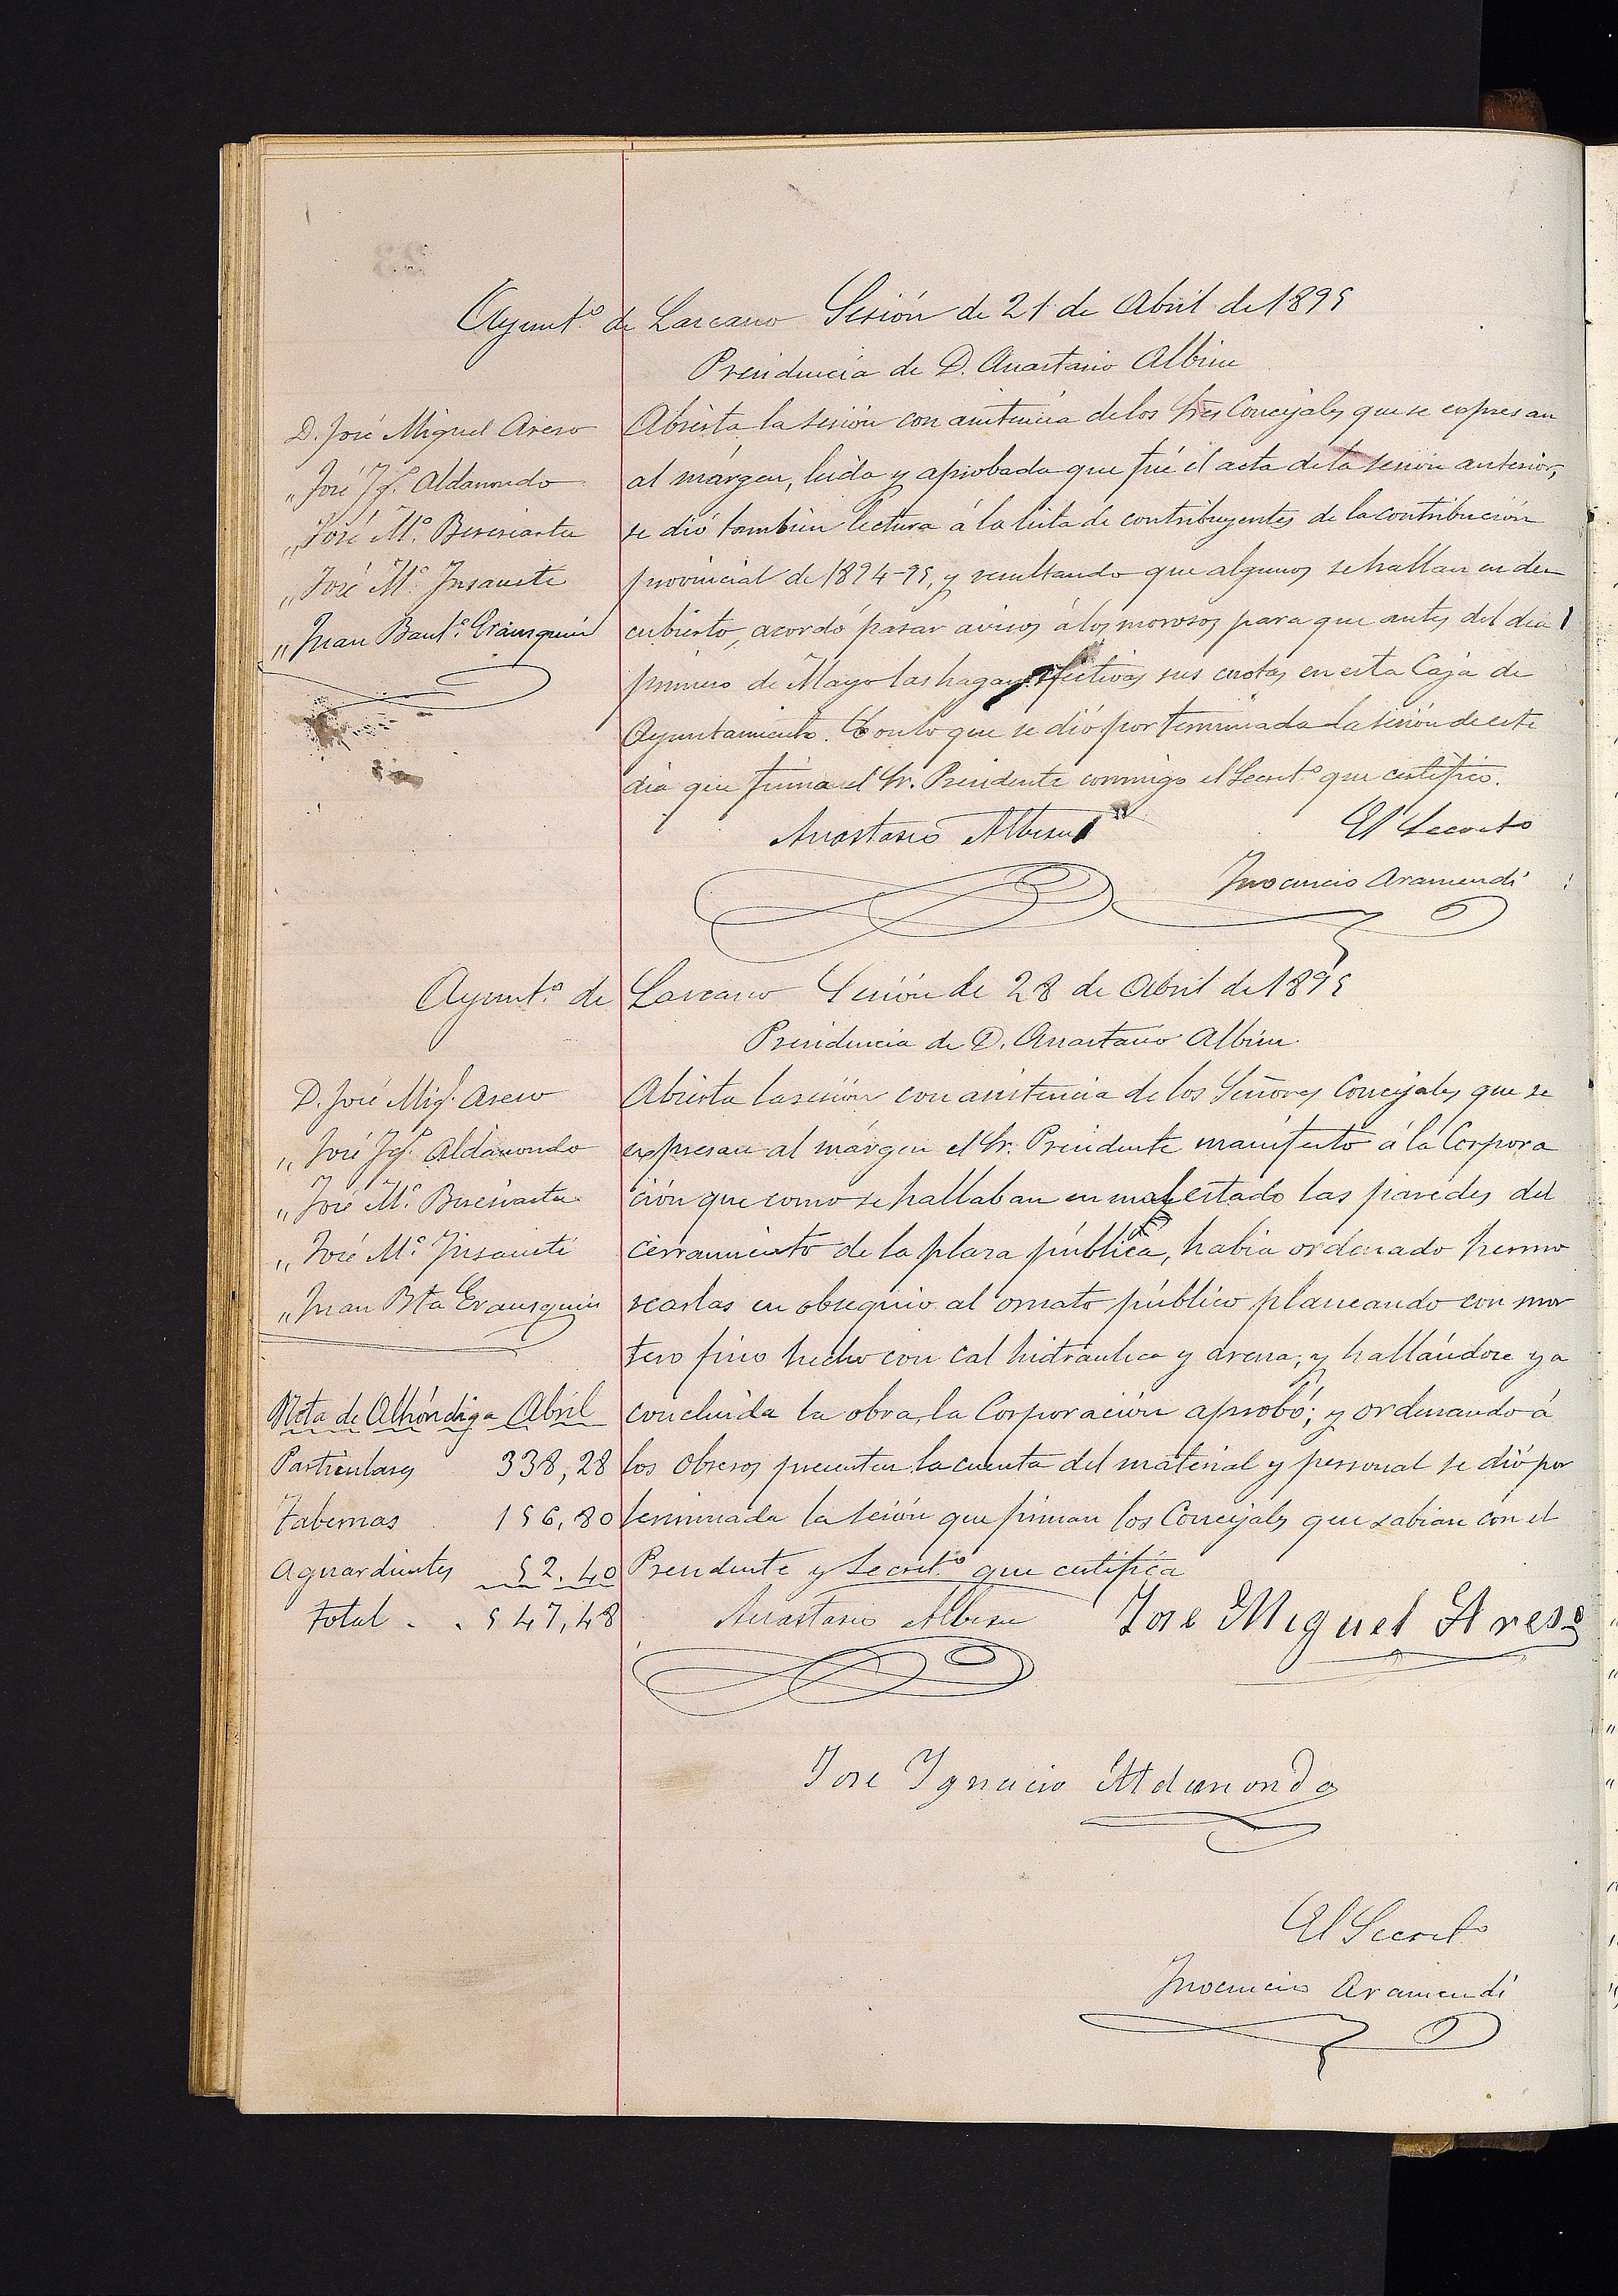 Ayunt.º de Lazcano Sesión de 21 de Abril de 1895
Presidencia de D. Anastasio Albisu
D. José Miguel Areso
„ José Ig.º Aldanondo
„ José M.ª Beresiartu
„ José M.ª Insausti
„ Juan Baut.ª Erausquin
Abierta la sesión con asistencia de los Sres Concejales que se expresan
al márgen, leida y aprobada que fué el acta de la sesion anterior,
se dió tambien lectura á la lista de contribuyentes de la contribución
provincial de 1894-95, y resultando que algunos se hallan en des
cubierto, acordó pasar avisos á los morosos para que antes del dia
primero de Mayo las hagan efectivas sus cuotas en esta Caja de
Ayuntamiento. Con lo que se dió por terminada la sesión de este
dia que firma el Sr. Presidente conmigo el Secret.º que certifico.
Anastasio Albisu
El Secreto
Inocencio Aramendi
Ayunt.º de Lazcano Sesión de 28 de Abril de 1895
Presidencia de D. Anastasio Albisu.
D. José Mig.l Areso
„ José Ig.º Aldanondo
„ José M.ª Beresiartu
„ José M.ª Insausti
„ Juan Bta Erausquin
Abierta la sesión con asistencia de los Señores Concejales que se
expresan al márgen el Sr. Presidente manifestó á la Corpora
ción que como se hallaban en mal estado las paredes del
cerramiento de la plaza pública, habia ordenado hermo
searlas en obsequio al ornato público planeando con mor
tero fino hecho con cal hidráulica y arena; y hallándose ya
concluida la obra, la Corporación aprobó; y ordenando á
los obreros presenten la cuenta del material y personal se dió por
terminada la sesión que firman los Concejales que sabian con el
Presidente y Secret.º que certifica
Nota de Alhóndiga Abril
Particulares 338,28
Tabernas 156,80
Aguardientes 52.40
Total . . 547,48
Anastasio Albisu
Jose Miguel Areso
Jose Ignacio Aldanondo
El Secreto
Inocencio Aramendi